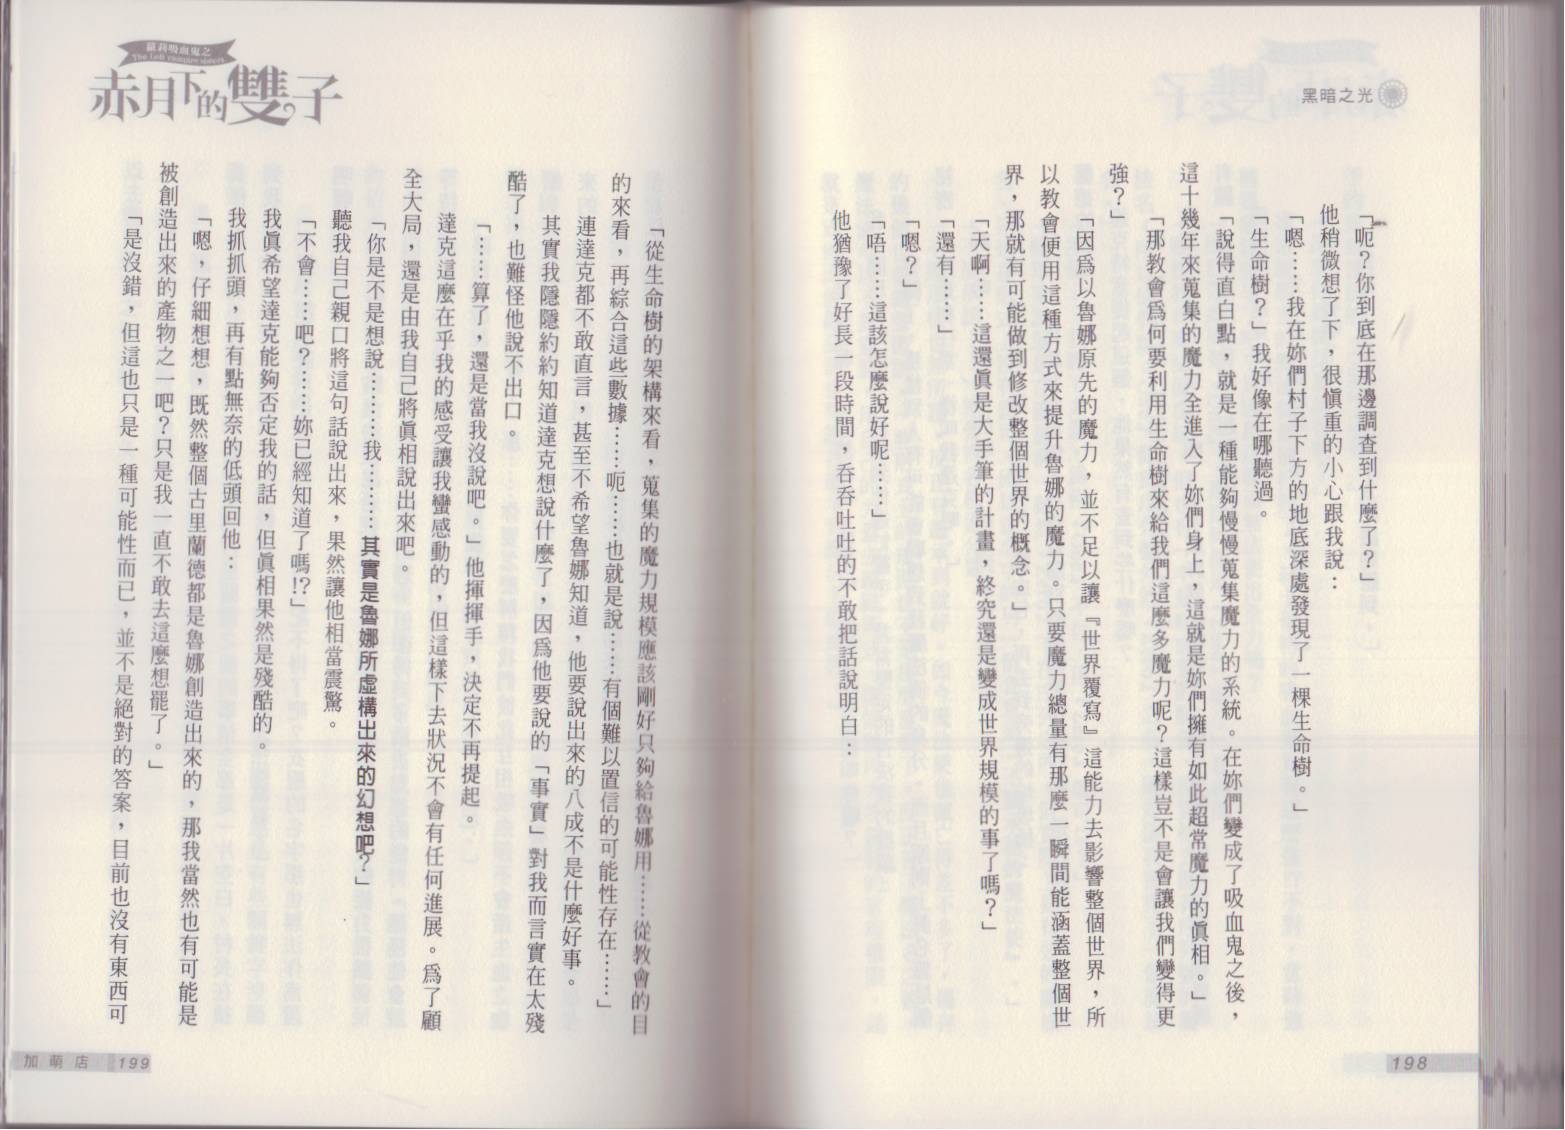 黑暗之光
「呃？你到底在那邊調查到什麼了？」
他稍微想了下，很慎重的小心跟我說：
「嗯……我在妳們村子下方的地底深處發現了一棵生命樹。」
「生命樹？」我好像在哪聽過。
「說得直白點，就是一種能夠慢慢蒐集魔力的系統。在妳們變成了吸血鬼之後，
這十幾年來蒐集的魔力全進入了妳們身上，這就是妳們擁有如此超常魔力的真相。」
「那教會為何要利用生命樹來給我們這麼多魔力呢？這樣豈不是會讓我們變得更
強？」
「因為以魯娜原先的魔力，並不足以讓『世界覆寫』這能力去影響整個世界，所
以教會便用這種方式來提升魯娜的魔力。只要魔力總量有那麼一瞬間能涵蓋整個世
界，那就有可能做到修改整個世界的概念。」
「天啊……這還真是大手筆的計畫，終究還是變成世界規模的事了嗎？」
「還有……」
「嗯？」
「唔……這該怎麼說好呢……」
他猶豫了好長一段時間，吞吞吐吐的不敢把話說明白：
198
蘿莉吸血鬼之
The Loli vampire sisters
赤月下的雙子
「從生命樹的架構來看，蒐集的魔力規模應該剛好只夠給魯娜用……從教會的目
的來看，再綜合這些數據……呃……也就是說……有個難以置信的可能性存在……」
連達克都不敢直言，甚至不希望魯娜知道，他要說出來的八成不是什麼好事。
其實我隱隱約約知道達克想說什麼了，因為他要說的「事實」對我而言實在太殘
酷了，也難怪他說不出口。
「……算了，還是當我沒說吧。」他揮揮手，決定不再提起。
達克這麼在乎我的感受讓我蠻感動的，但這樣下去狀況不會有任何進展。為了顧
全大局，還是由我自己將真相說出來吧。
「你是不是想說………我………其實是魯娜所虛構出來的幻想吧？」
聽我自己親口將這句話說出來，果然讓他相當震驚。
「不會……吧？……妳已經知道了嗎!?」
我真希望達克能夠否定我的話，但真相果然是殘酷的。
我抓抓頭，再有點無奈的低頭回他：
「嗯，仔細想想，既然整個古里蘭德都是魯娜創造出來的，那我當然也有可能是
被創造出來的產物之一吧？只是我一直不敢去這麼想罷了。」
「是沒錯，但這也只是一種可能性而已，並不是絕對的答案，目前也沒有東西可
加萌店 199